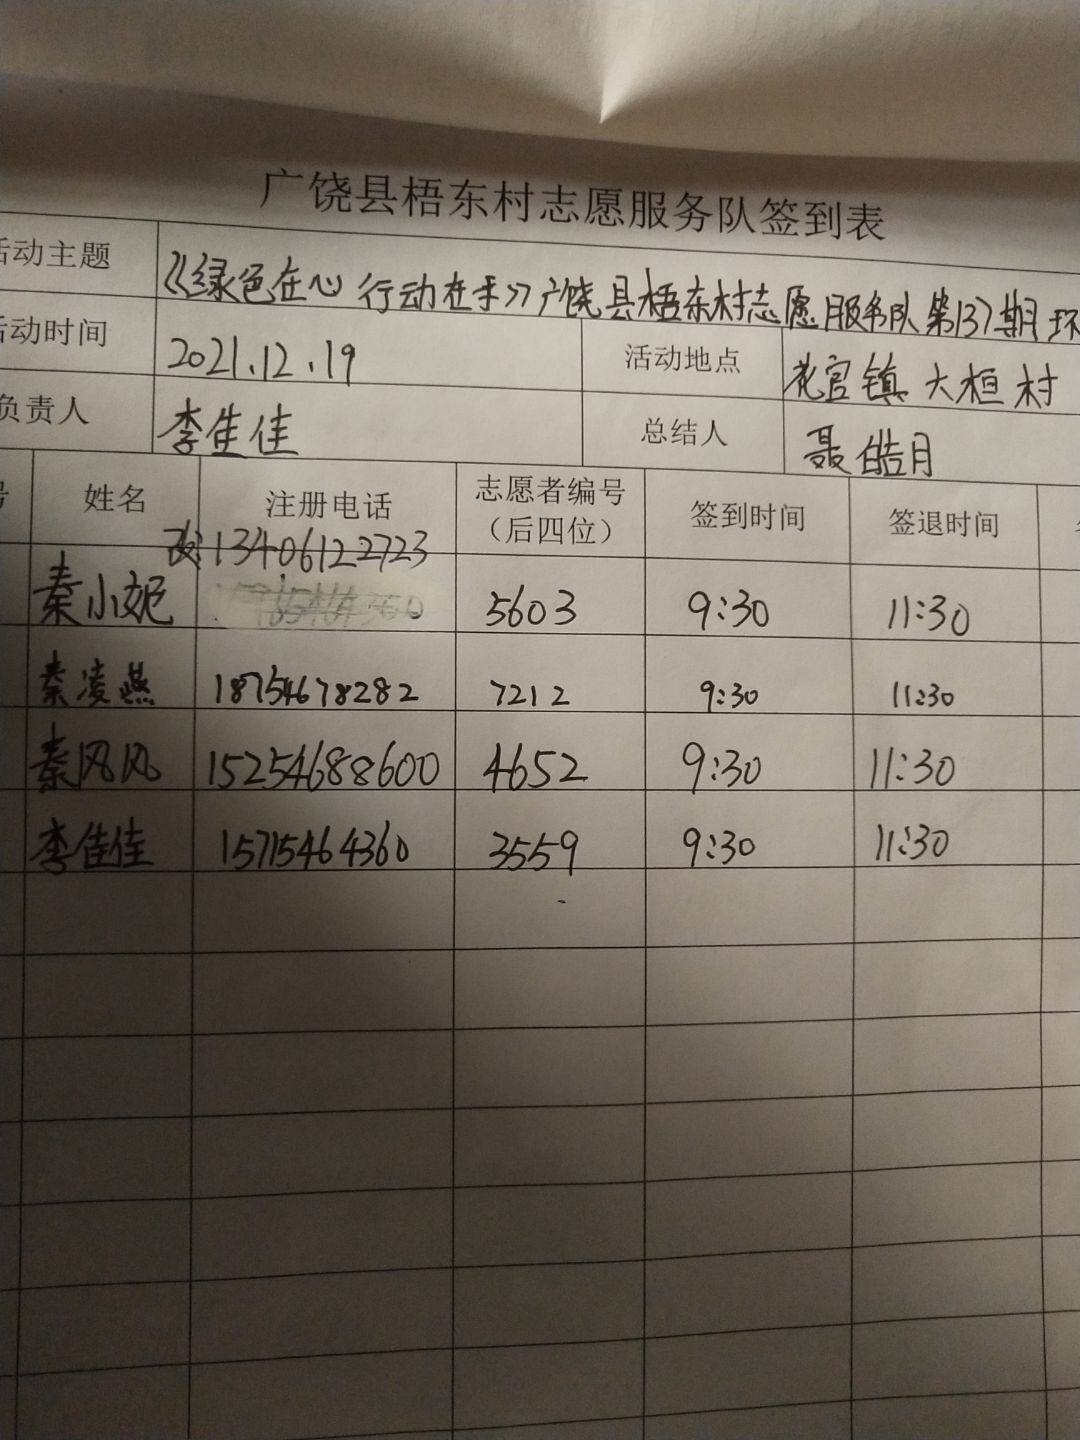 广饶县梧东村志愿服务队签到表
活动主题 《绿色在心 行动在手》广饶县梧东村志愿服务队第137期环
活动时间 2021.12.19 活动地点 花官镇大桓村
负责人 李佳佳 总结人 聂皓月
号 姓名 注册电话 志愿者编号（后四位） 签到时间 签退时间
改:13406122723
秦小妮 5603 9:30 11:30
秦凌燕 18754678282 7212 9:30 11:30
秦风风 15254688600 4652 9:30 11:30
李佳佳 15715464360 3559 9:30 11:30